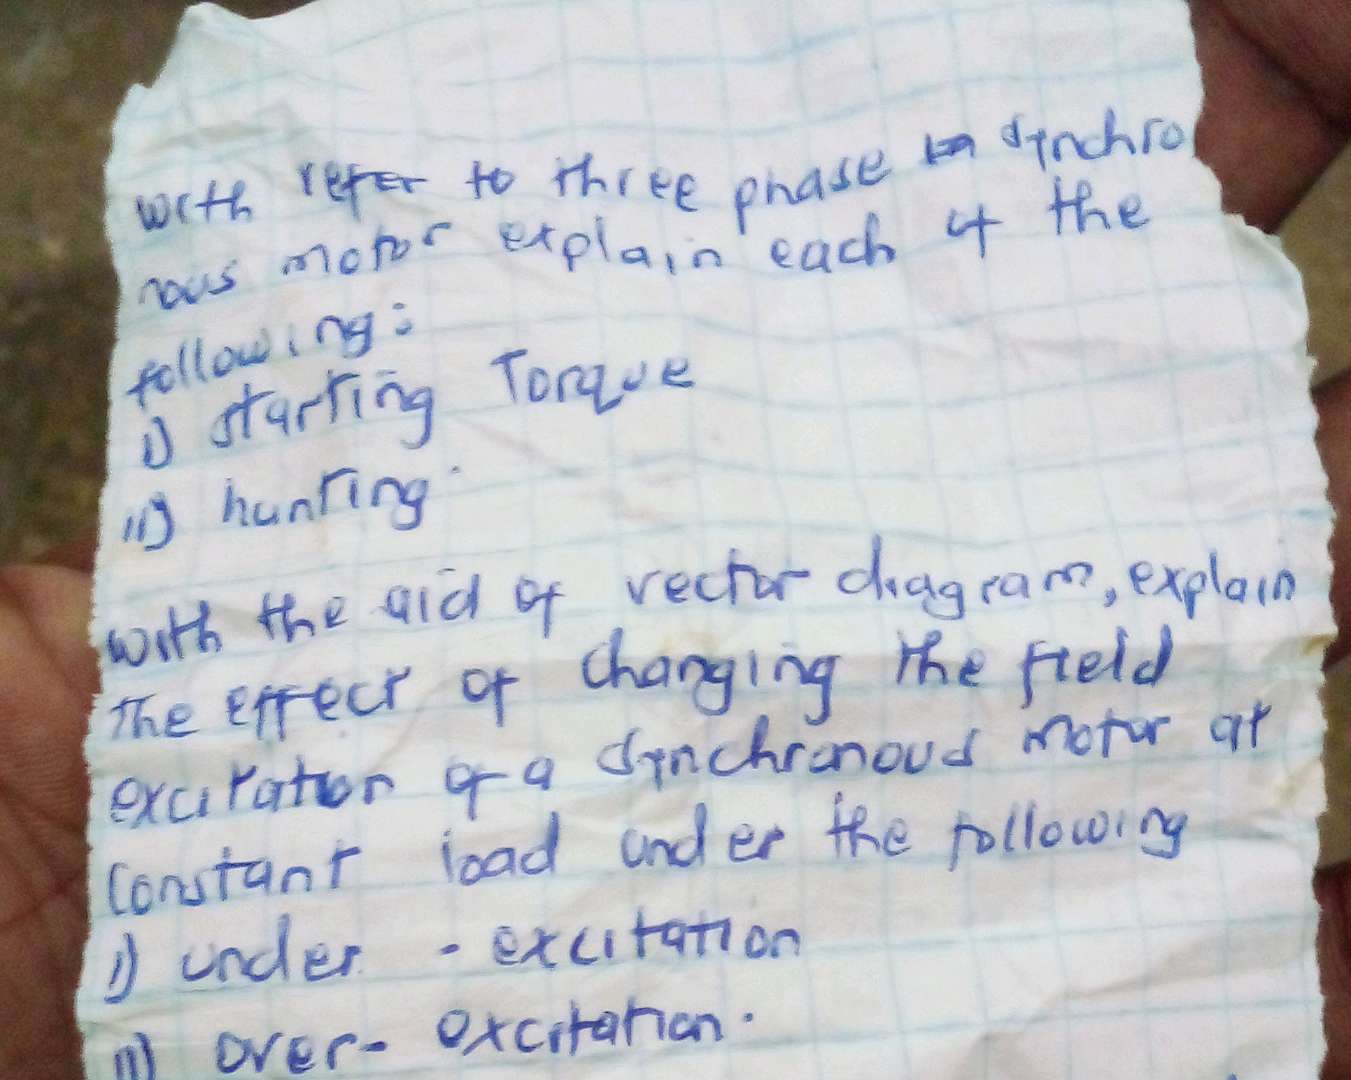 with refer to three phase synchro
nous motor explain each of the
following:
i) starting Torque
ii) hunting
with the aid of vector diagram, explain
The effect of changing the field
excitation of a synchronous motor at
constant load under the following
i) under - excitation
ii) over- excitation.